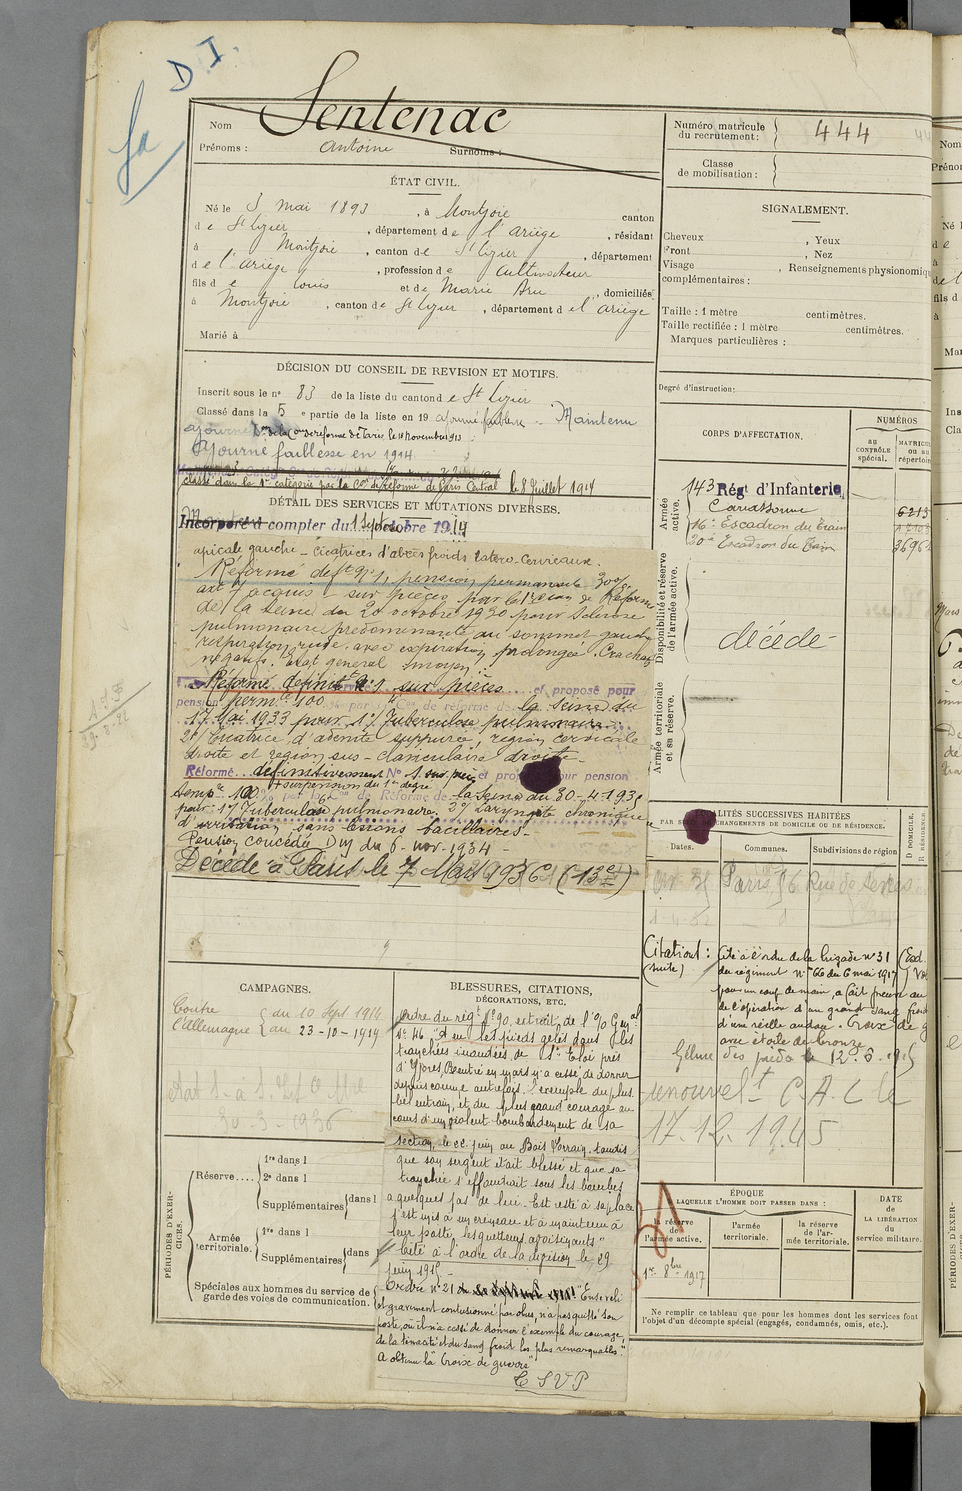 D I.
Nom Sentenac
Prénoms : Antoine Surnoms :
Numéro matricule du recrutement : 444
Classe de mobilisation :
ÉTAT CIVIL.
Né le 3 mai 1893, à Montjoie canton
de St Lizier, département de l'ariège, résidant
à Montjoie, canton de St Lizier, département
de l'ariège, profession de cultivateur
fils de Louis et de Marie Aru, domiciliés
à Montjoie, canton de St Lizier, département de l'ariège
Marié à
SIGNALEMENT.
Cheveux , Yeux
Front , Nez
Visage , Renseignements physionomiq
complémentaires :
Taille : 1 mètre centimètres.
Taille rectifiée : 1 mètre centimètres.
Marques particulières :
Degré d'instruction:
DÉCISION DU CONSEIL DE REVISION ET MOTIFS.
Inscrit sous le no 83 de la liste du canton de St Lizier
Classé dans la 5 e partie de la liste en 19 ajourné faiblesse - Maintenu
ajourné Don de la Com de réforme de Paris le 18 novembre 1913
Ajourné faiblesse en 1914
classé dans la 1re catégorie par la Con de Réforme de Paris Central le 8 Juillet 1914
DÉTAIL DES SERVICES ET MUTATIONS DIVERSES.
Incorporé à compter du 1 Septembre 1914
apicale gauche - Cicatrices d'abcès froids latéro-cervicaux.
Réformé deft No 1, pension permanente 30%
art 7 acquis - sur pièces par la 1re Con de Réforme
de la Seine du 20 octobre 1930 pour Sclérose
pulmonaire prédominante au sommet gauche
respiration rude avec expiration prolongée. Crachats
négatifs. État général moyen.
Réformé définitt No 1 sur pièces et proposé pour
pension permte 100 % par la Con de réforme de la Seine du
17 Mai 1933 pour 1°/ Tuberculose pulmonaire
2°/ Cicatrice d'adénite suppurée, région cervicale
droite et région sus-claviculaire droite -
Réformé définitivement No 1 sur pièces et proposé pour pension
+ suspension du 1er degré
temp re 100 % par la Con de Réforme de la Seine du 30-4-193
pour : 1°/ Tuberculose pulmonaire. 2°/ Laryngite chronique
d'irritation sans lésions bacillaires -
Pension concédée Dm du 6-nov-1934 -
Décédé à Paris le 7 Mars 1936 (13e)
CORPS D'AFFECTATION.
NUMÉROS
au CONTRÔLE spécial.
MATRICU ou au répertoir
Armée active.
143 Régt d'Infanterie 6213
Carcassonne
16e Escadron du Train
20e Escadron du Train 3696
Disponibilité et réserve de l'armée active.
décédé -
Armée territoriale et sa réserve.
LITÉS SUCCESSIVES HABITÉES
PAR SUITE DE CHANGEMENTS DE DOMICILE OU DE RÉSIDENCE.
Dates. Communes. Subdivisions de région D DOMICILE. R RÉSIDENCE
Paris, 86 Rue de Sèvres
Citations : (suite)
Cité à l'ordre de la brigade no 31
du régiment No 66 du 6 mai 1917
pour un coup de main, a fait preuve au
de l'opération d'un grand sang froid
d'une réelle audace. Croix de g
avec étoile de bronze
Gelure des pieds le 12.6.1915
renouvelt C.A.C le
17.12.1945
CAMPAGNES.
Contre l'Allemagne { du 10 Sept 1914
au 23-10-1919
30-3-1936
BLESSURES, CITATIONS,
DÉCORATIONS, ETC.
Ordre du régt No 90, extrait de l'o Gral
No 46 "A eu les pieds gelés dans les
tranchées inondées de St Eloi près
d'Ypres. Rentré en mars n'a cessé de donner
depuis comme autrefois l'exemple du plus
bel entrain, et du plus grand courage au
cours d'un violent bombardement de sa
section, le 22 juin au Bois Lorrain, tandis
que son sergent était blessé et que sa
tranchée s'effondrait sous les bombes
à quelques pas de lui. Est resté à sa place
s'est mis à un créneau et a maintenu à
leur poste, les guetteurs avoisinants"
Cité à l'ordre de la division le 29
juin 1915 -
Ordre no 21 "Enseveli
et gravement contusionné par obus, n'a pas quitté son
poste, où il n'a cessé de donner l'exemple du courage,
de la ténacité et du sang froid les plus remarquables."
A obtenu la "Croix de guerre"
T S V P
PÉRIODES D'EXERCICES.
Réserve....
1re dans l
2e dans l
Supplémentaires dans l
Armée territoriale.
1re dans l
Supplémentaires dans l
Spéciales aux hommes du service de garde des voies de communication.
ÉPOQUE
À LAQUELLE L'HOMME DOIT PASSER DANS :
la réserve de l'armée active.
l'armée territoriale.
la réserve de l'armée territoriale.
DATE de LA LIBÉRATION du service militaire.
1er 8bre 1917
Ne remplir ce tableau que pour les hommes dont les services font
l'objet d'un décompte spécial (engagés, condamnés, omis, etc.).